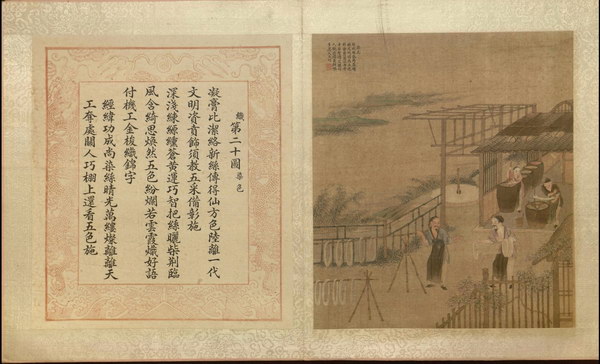 織第二十圖染色
凝膏比潔絡新絲傳得仙方色陸離一代
文明資賁飾須教五采備彰施
深淺練緣纁蒼黃運巧智把絲曬柴荊臨
風含綺思煥然五色紛爛若雲霞熾好語
付機工金梭織錦字
經緯功成尚染絲晴光萬縷燦離離天
工奪處關人巧棚上還看五色施